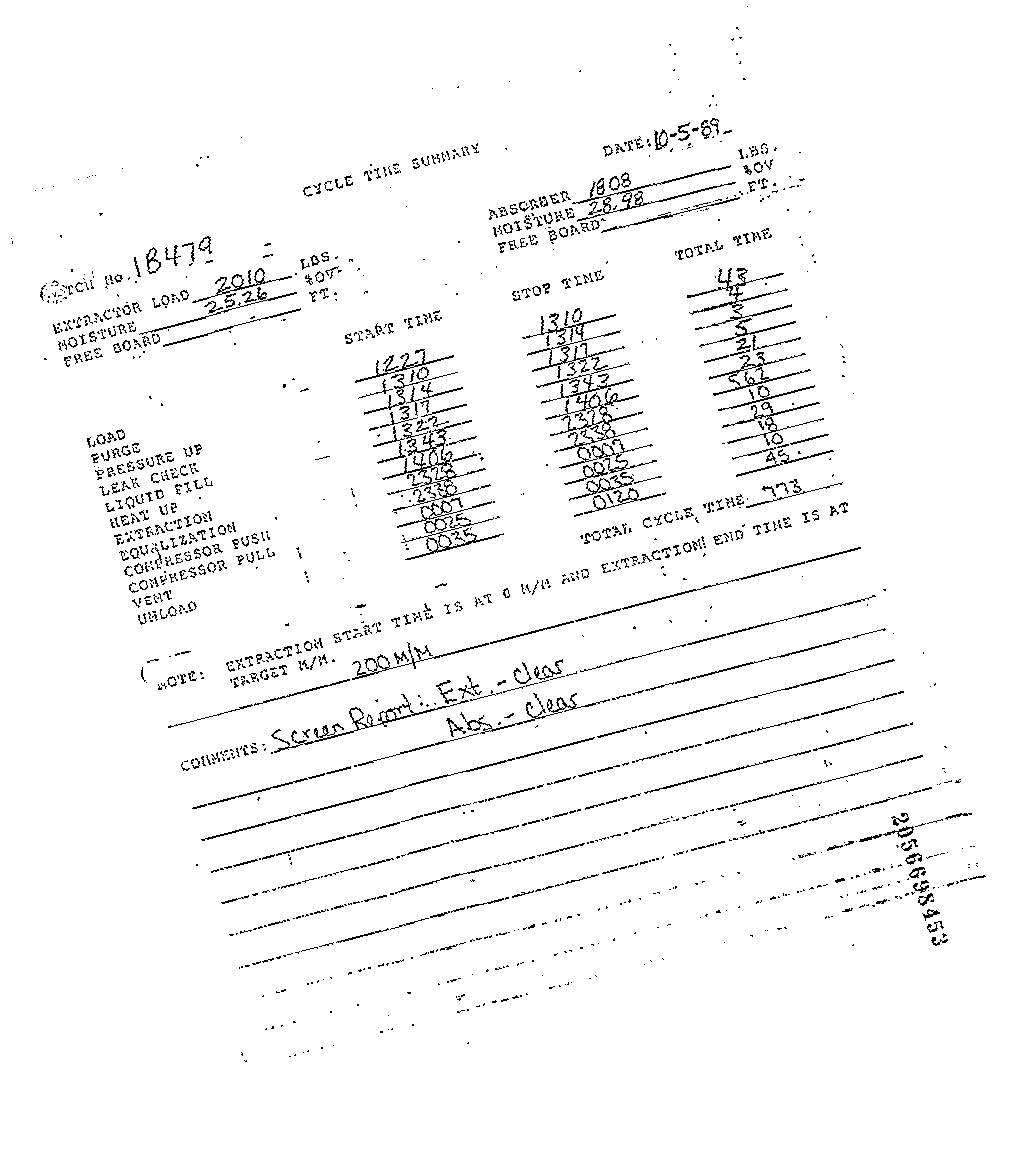 CYCLE TIME SUMMARY
DATE: 10-5-89
BATCH No. 18479
EXTRACTOR LOAD 2010 LBS.
MOISTURE 25.26 %OV
FREE BOARD FT.
ABSORBER 1808 LBS.
MOISTURE 28.98 %OV
FREE BOARD FT.
START TIME STOP TIME TOTAL TIME
LOAD 1227 1310 43
PURGE 1310 1314 4
PRESSURE UP 1314 1317 3
LEAK CHECK 1317 1322 5
LIQUID FILL 1322 1343 21
HEAT UP 1343 1406 23
EXTRACTION 1406 2328 562
EQUALIZATION 2328 2338 10
COMPRESSOR PUSH 2338 0007 29
COMPRESSOR PULL 0007 0025 18
VENT 0025 0035 10
UNLOAD 0035 0120 45
TOTAL CYCLE TIME 773
NOTE: EXTRACTION START TIME IS AT 0 M/M AND EXTRACTION END TIME IS AT
TARGET M/M. 200 M/M
COMMENTS: Screen Report: Ext. - Clear
Abs. - Clear
2056698453